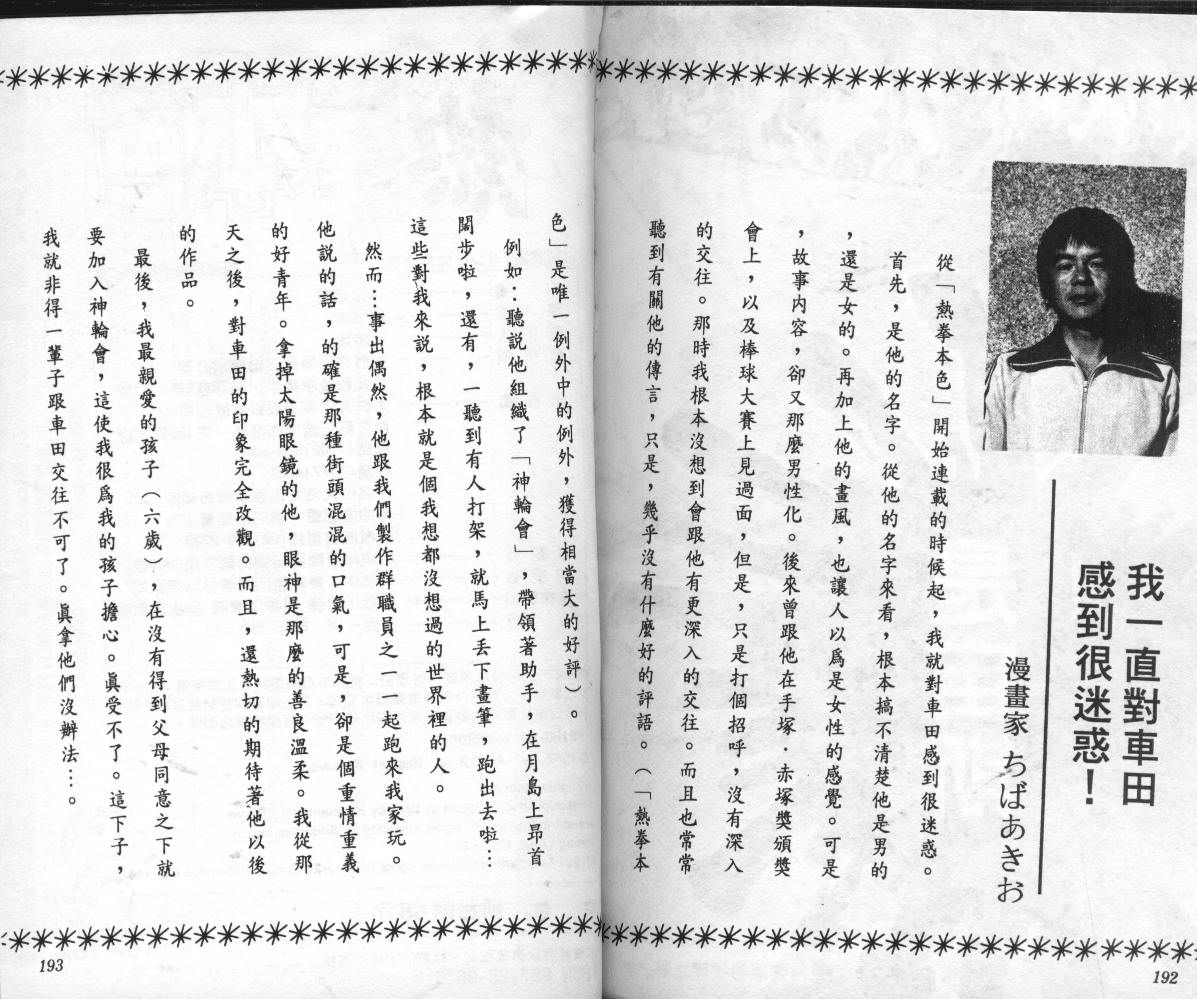 我一直對車田
感到很迷惑！
漫畫家 ちばあきお
從「熱拳本色」開始連載的時候起，我就對車田感到很迷惑。
首先，是他的名字。從他的名字來看，根本搞不清楚他是男的
，還是女的。再加上他的畫風，也讓人以爲是女性的感覺。可是
，故事內容，卻又那麼男性化。後來曾跟他在手塚．赤塚獎頒獎
會上，以及棒球大賽上見過面，但是，只是打個招呼，沒有深入
的交往。那時我根本沒想到會跟他有更深入的交往。而且也常常
聽到有關他的傳言，只是，幾乎沒有什麼好的評語。（「熱拳本
192
色」是唯一例外中的例外，獲得相當大的好評）。
例如：聽說他組織了「神輪會」，帶領著助手，在月島上昂首
闊步啦，還有，一聽到有人打架，就馬上丟下畫筆，跑出去啦…
這些對我來說，根本就是個我想都沒想過的世界裡的人。
然而…事出偶然，他跟我們製作群職員之一一起跑來我家玩。
他說的話，的確是那種街頭混混的口氣，可是，卻是個重情重義
的好青年。拿掉太陽眼鏡的他，眼神是那麼的善良溫柔。我從那
天之後，對車田的印象完全改觀。而且，還熱切的期待著他以後
的作品。
最後，我最親愛的孩子（六歲），在沒有得到父母同意之下就
要加入神輪會，這使我很爲我的孩子擔心。眞受不了。這下子，
我就非得一輩子跟車田交往不可了。眞拿他們沒辦法…。
193